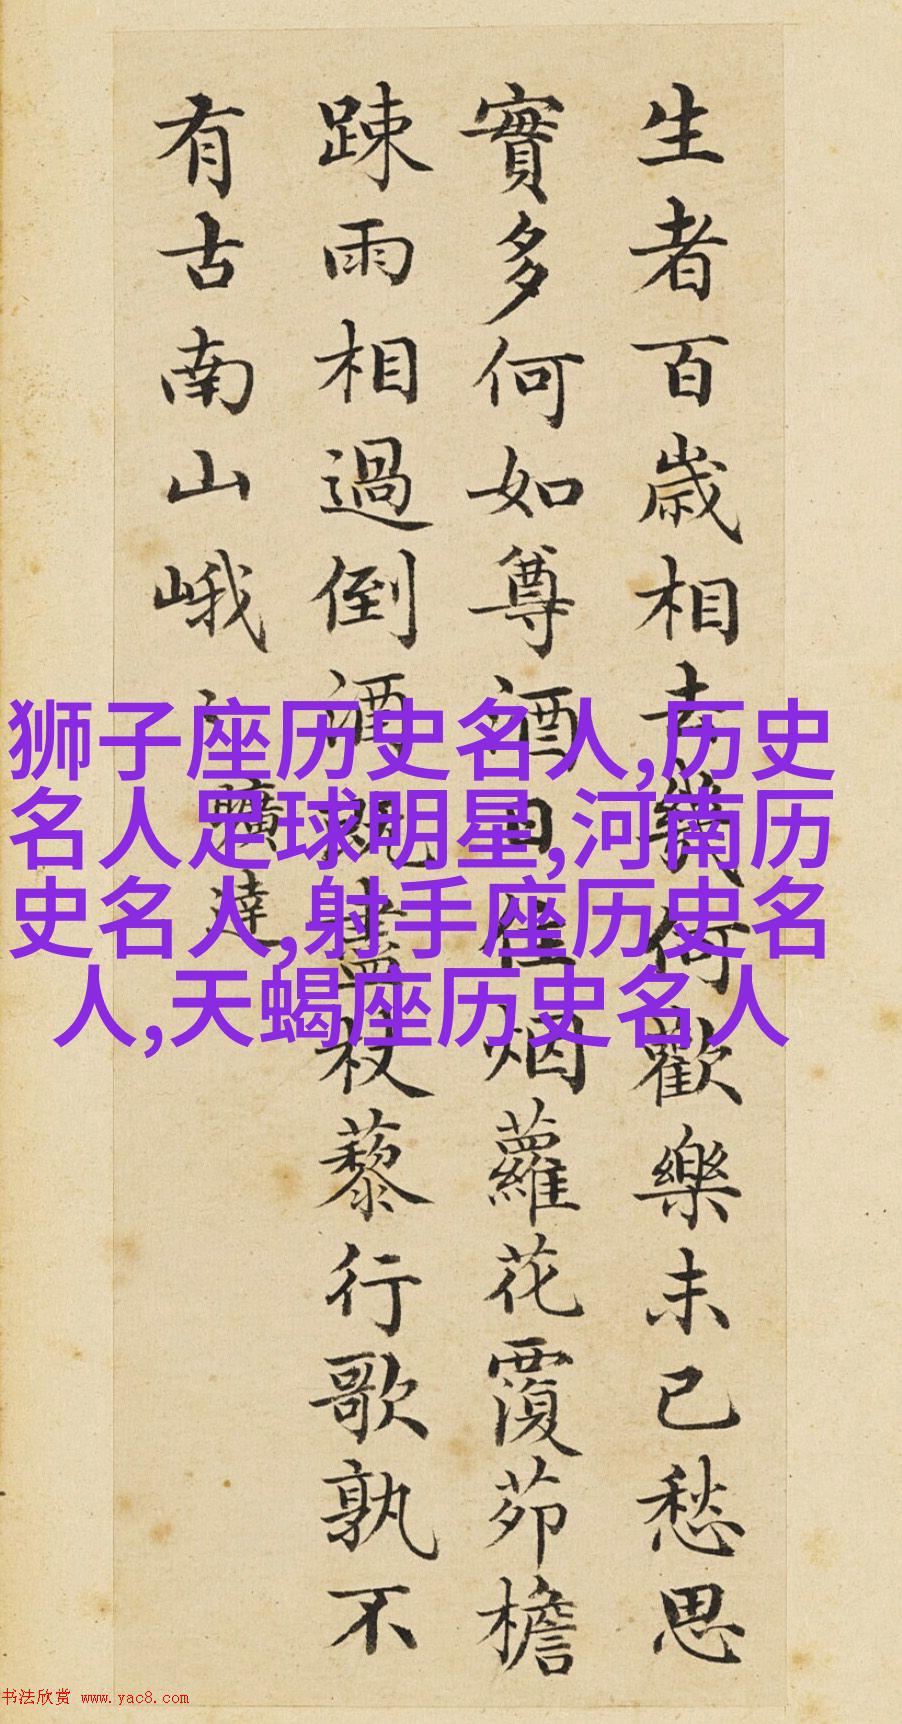 生者百歲相去幾何歡樂未已愁思
實多何如尊酒日往烟蘿花覆茆檐
踈雨相過倒酒既盡杖藜行歌孰不
有古南山峨〻曠達
狮子座历史名人,历史
名人足球明星,河南历
史名人,射手座历史名
人,天蝎座历史名人
书法欣赏 www.yac8.com